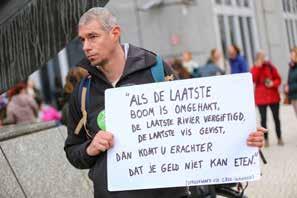 "ALS DE LAATSTE
BOOM IS OMGEHAKT,
DE LAATSTE RIVIER VERGIFTIGD,
DE LAATSTE VIS GEVIST,
DAN KOMT U ERACHTER
DAT JE GELD NIET KAN ETEN."